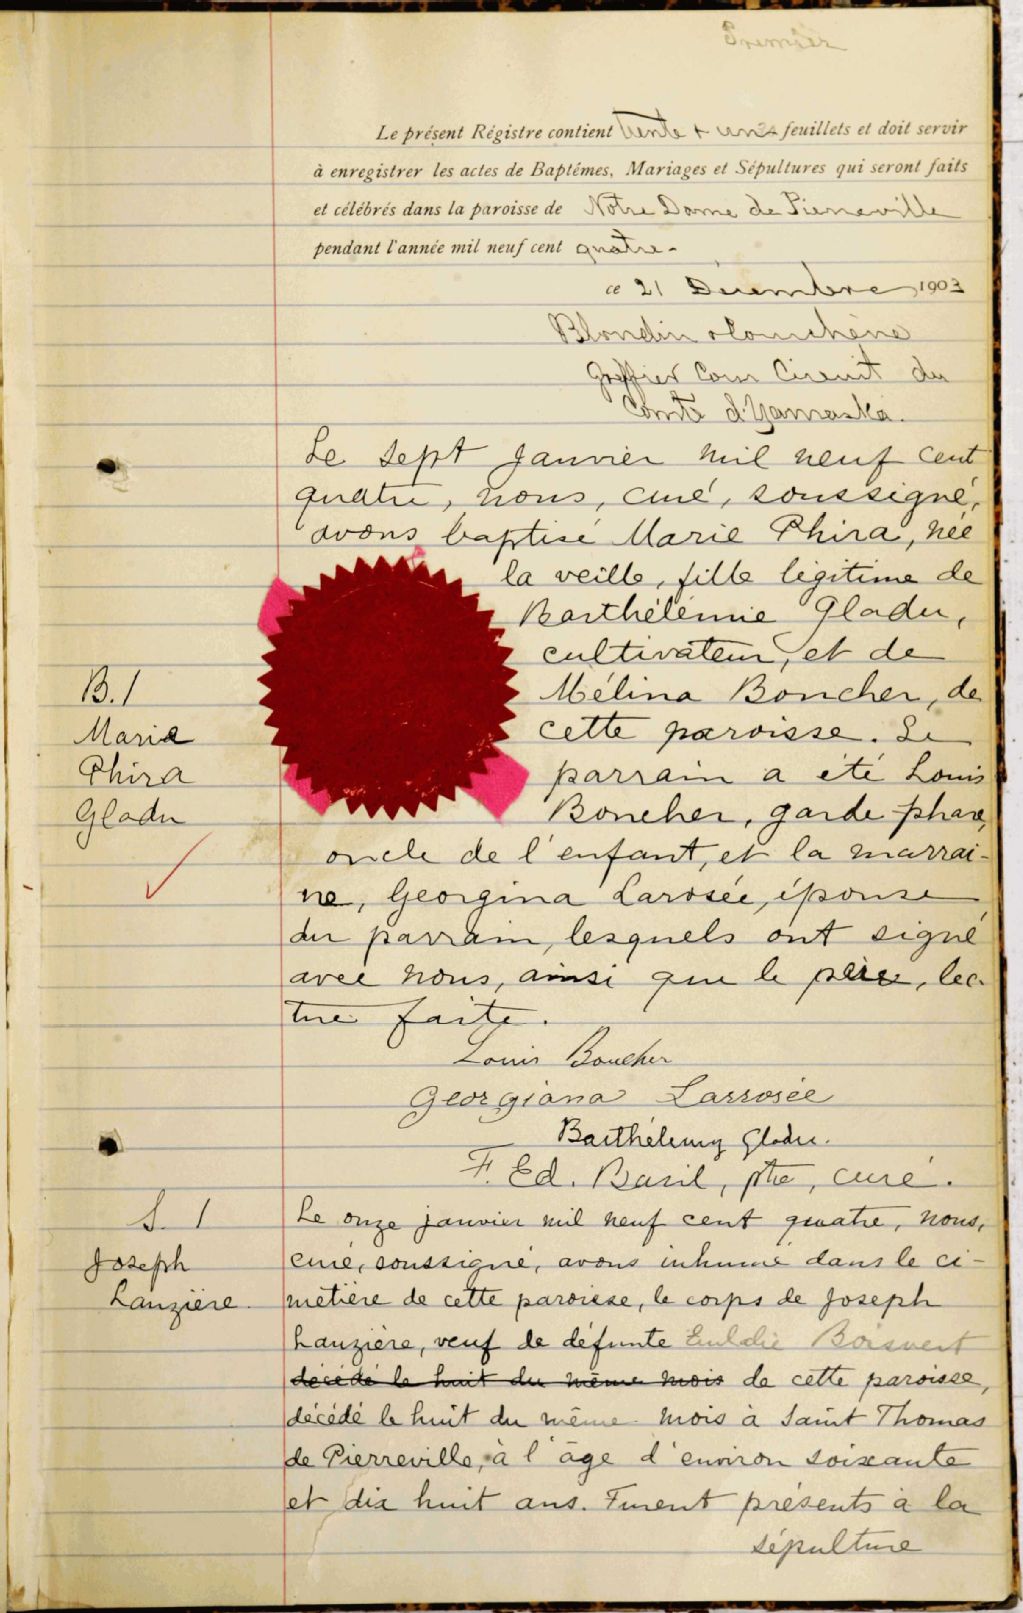 Premier
Le présent Régistre contient trente & une feuillets et doit servir
à enregistrer les actes de Baptêmes, Mariages et Sépultures qui seront faits
et célébrés dans la paroisse de Notre Dame de Pierreville
pendant l'année mil neuf cent quatre -
ce 21 Décembre 1903
Blondin &
Greffier Cour Circuit du
Comté d'Yamaska.
Le sept janvier mil neuf cent
quatre, nous, curé, soussigné,
avons baptisé Marie Phira, née
la veille, fille légitime de
Barthélémie Gladu,
cultivateur, et de
B.1
Mélina Boucher, de
Marie
cette paroisse. Le
Phira
parrain a été Louis
Gladu
Boucher, garde-phare,
oncle de l'enfant, et la marrai-
ne, Georgina Larosée, épouse
du parrain, lesquels ont signé
avec nous, ainsi que le père, lec-
ture faite.
Louis Boucher
Georgiana Larrosée
Barthélemy Gladu.
F. Ed. Baril, ptre, curé.
S. 1
Le onze janvier mil neuf cent quatre, nous,
Joseph
curé, soussigné, avons inhumé dans le ci-
Lanzière
metière de cette paroisse, le corps de Joseph
Lanzière, veuf de défunte Eulalie Boisvert
décédé le huit du même mois de cette paroisse,
décédé le huit du même mois à Saint Thomas
de Pierreville, à l'âge d'environ soixante
et dix huit ans. Furent présents à la
sépulture